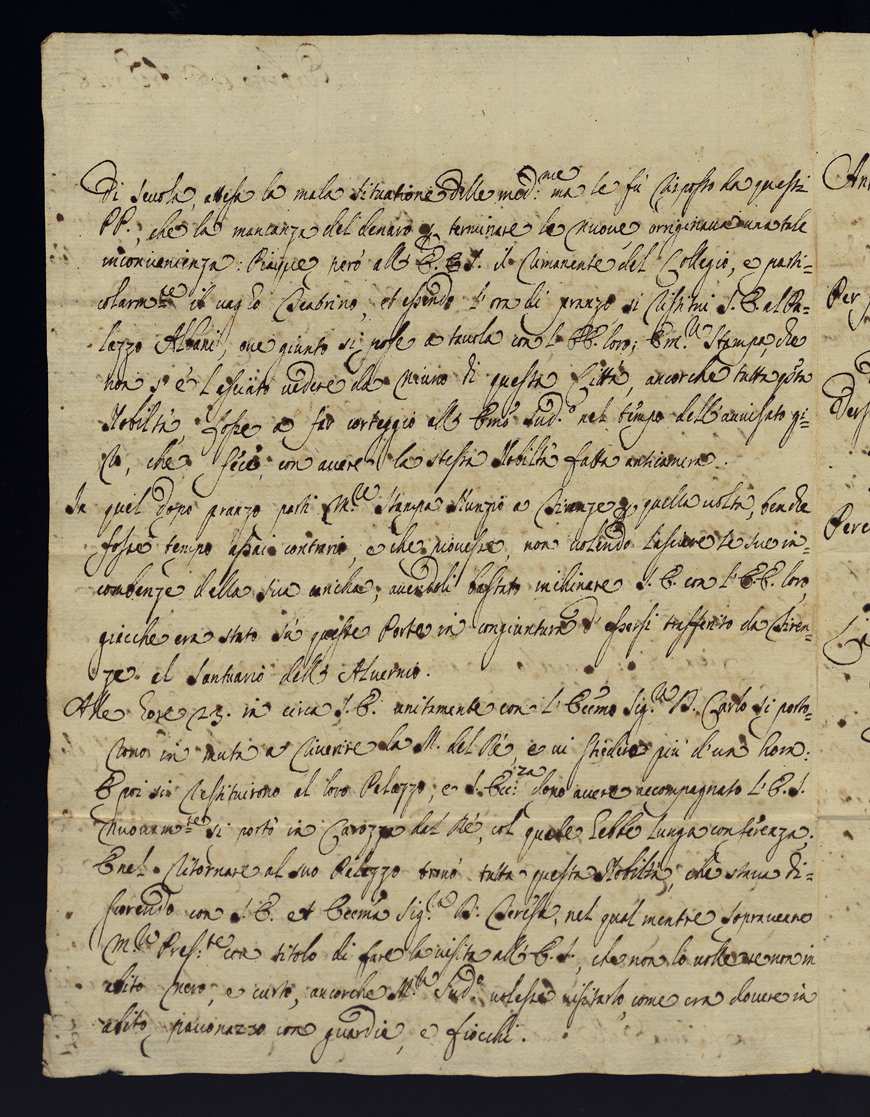 Di scuola, attesa la mala situatione delle med:me ma le fù risposto da questi
PP., che la mancanza del denaro p terminare le nuove originava una tale
inconvenienza: Piacque però all' E. S. il rimanente del Collegio, e parti=
colarm:te il vago Teatrino, et essendo l'ora di pranzo si restituì S. E. al Pa=
lazzo Albani, ove giunto si pose a tavola con l' EE. loro; M.r Stampa, che
non s'è lasciato vedere da niuno di questa Città, ancorche tutta q̃sta
Nobiltà, fosse a far corteggio all' Emõ Sud.o nel tempo dell' avvisato gi=
ro, che fece, con avere la stessa Nobiltà fatta anticamera.
In quel dopo pranzo partì M.r Stampa Nunzio a Firenze p quella volta, benche
fosse tempo assai contrario, e che piovesse, non volendo lasciare le sue in=
combenze della sua carica; avendoli bastato inchinare S. E. con l' EE. loro,
giacche era stato in queste Parte in congiuntura d' essersi trasferito da Firen=
ze al Santuario dell' Alvernia.
Alle hore 23. in circa S. E. unitamente con l' Eccmo Sig.r D. Carlo si porta=
rono in muta a riverire la M. del Rè, e vi stiedero più d'un hora:
E poi si restituirono al loro Palazzo, e S. Ecc:za dopo avere accompagnato l' E. S.
nuovam:te si portò in Carozza dal Rè, col quale hebbe lunga conferenza.
E nel ritornare al suo Palazzo trovò tutta questa Nobiltà, che stava di=
scorendo con S. E. et Eccma Sig.ra D. Teresa, nel qual mentre sopravenne
M.r Pres:te con titolo di fare la visita all' E. S., che non lo volle se non in
abito nero, e curto, ancorche M.r Sud.o volesse visitarlo, come era dovere in
abito pavonazzo con guardia, e fiocchi.
An
Per
Ders
Perc